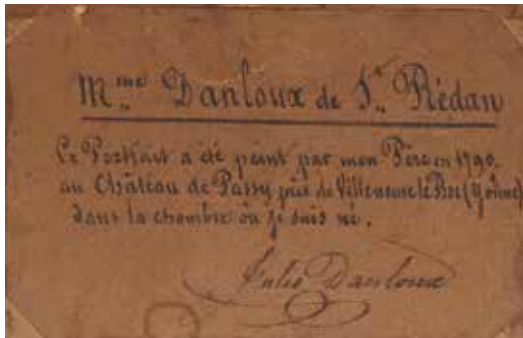 Mme Danloux de St Rédan
Ce Portrait a été peint par mon Père en 1790.
au Château de Passy près de Villeneuve le Roi (Yonne)
dans la chambre où je suis né.
Jules Danloux